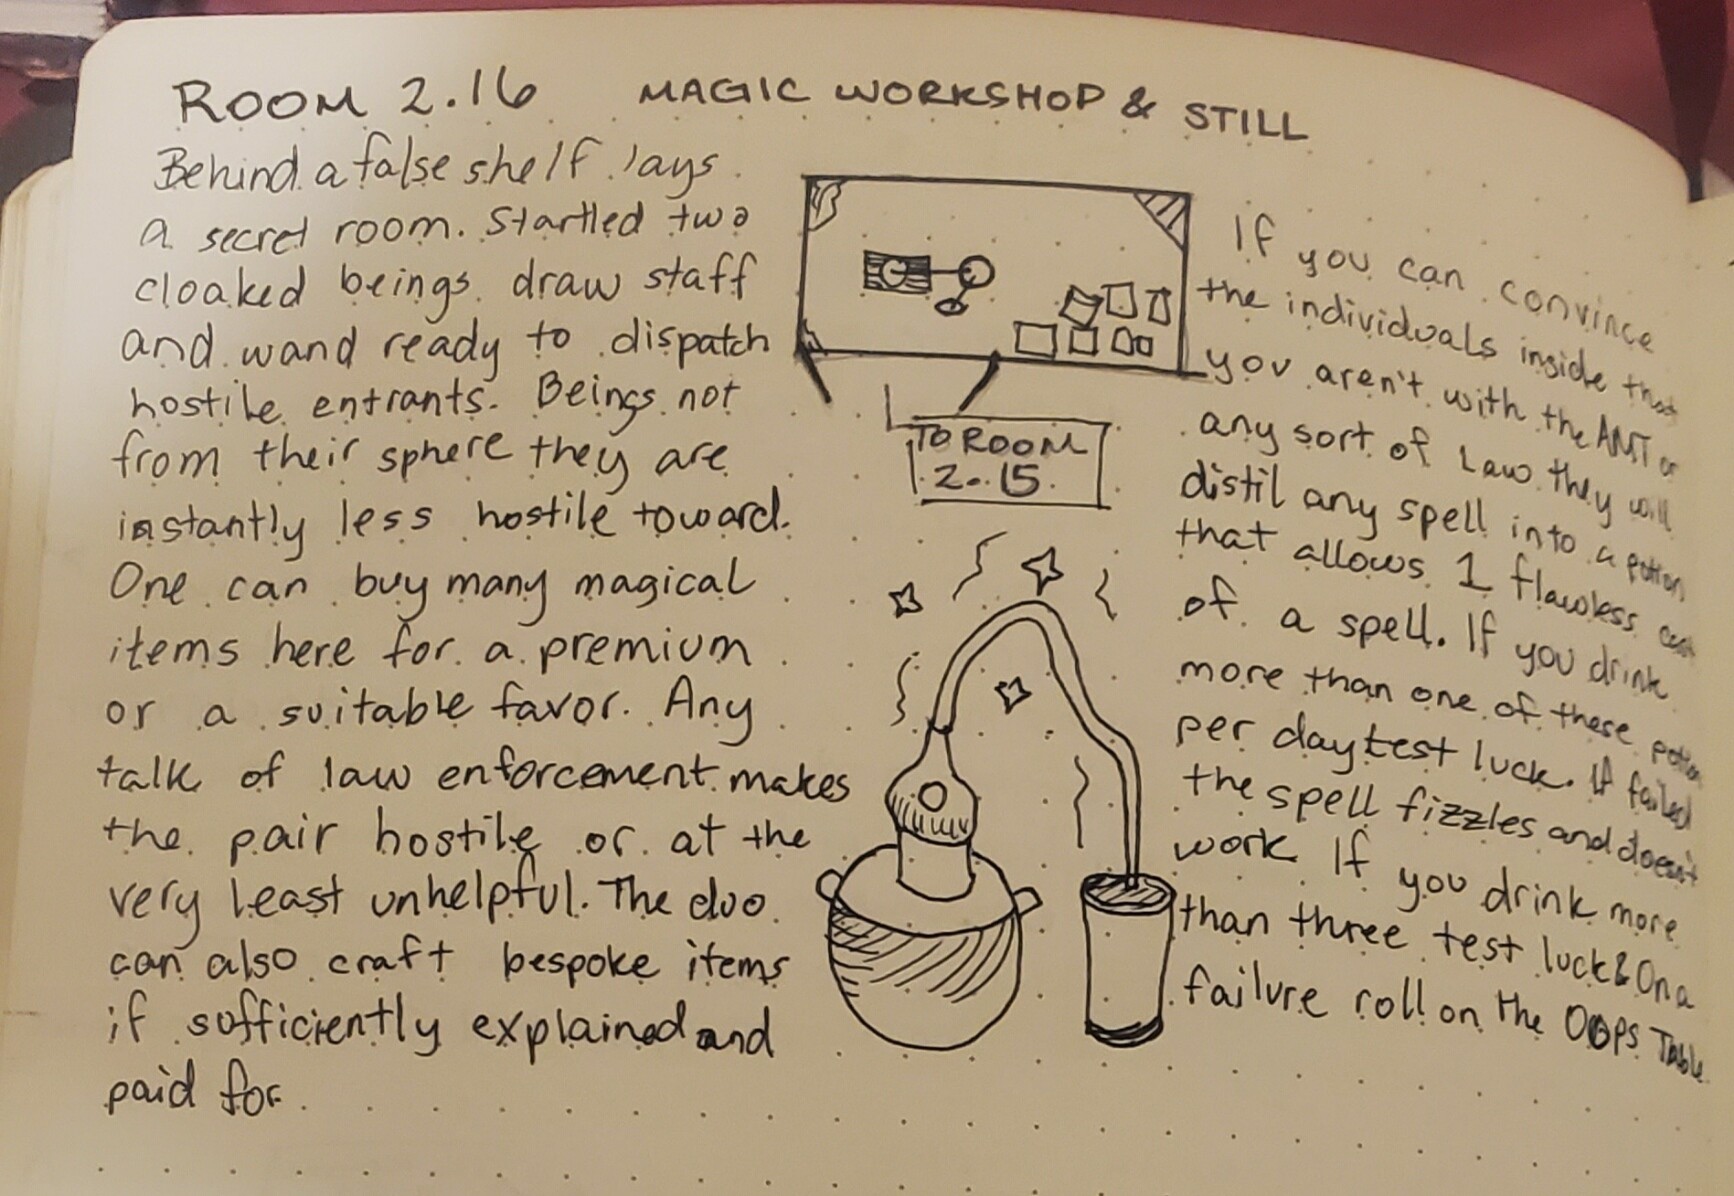 ROOM 2.16 MAGIC WORKSHOP & STILL
Behind a false shelf lays
a secret room. Startled two
cloaked beings draw staff
and wand ready to dispatch
hostile entrants. Beings not
from their sphere they are
instantly less hostile toward.
One can buy many magical
items here for a premium
or a suitable favor. Any
talk of law enforcement makes
the pair hostile or at the
very least unhelpful. The duo
can also craft bespoke items
if sufficiently explained and
paid for.
TO ROOM
2.15
If you can convince
the individuals inside that
you aren't with the AMT or
any sort of Law they will
distil any spell into a potion
that allows 1 flawless cast
of a spell. If you drink
more than one of these potion
per day test luck. If failed
the spell fizzles and doesn't
work If you drink more
than three test luck & On a
failure roll on the Oops Table